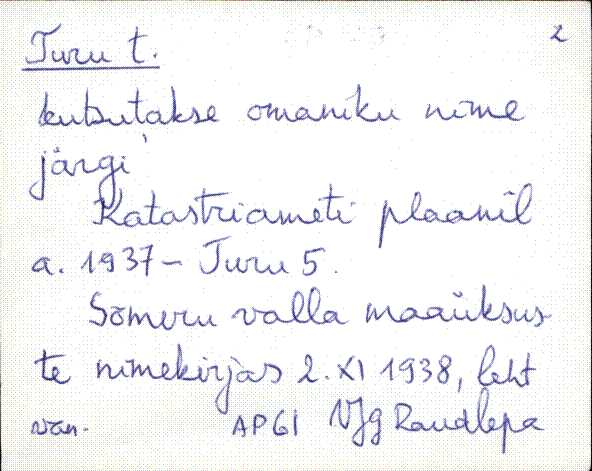 Turu t. 2
kutsutakse omaniku nime
järgi
Katastriameti plaanil
a. 1937 – Turu 5.
Sõmeru valla maaüksus-
te nimekirjas 2. XI 1938, leht
APGI VJg Raudlepa